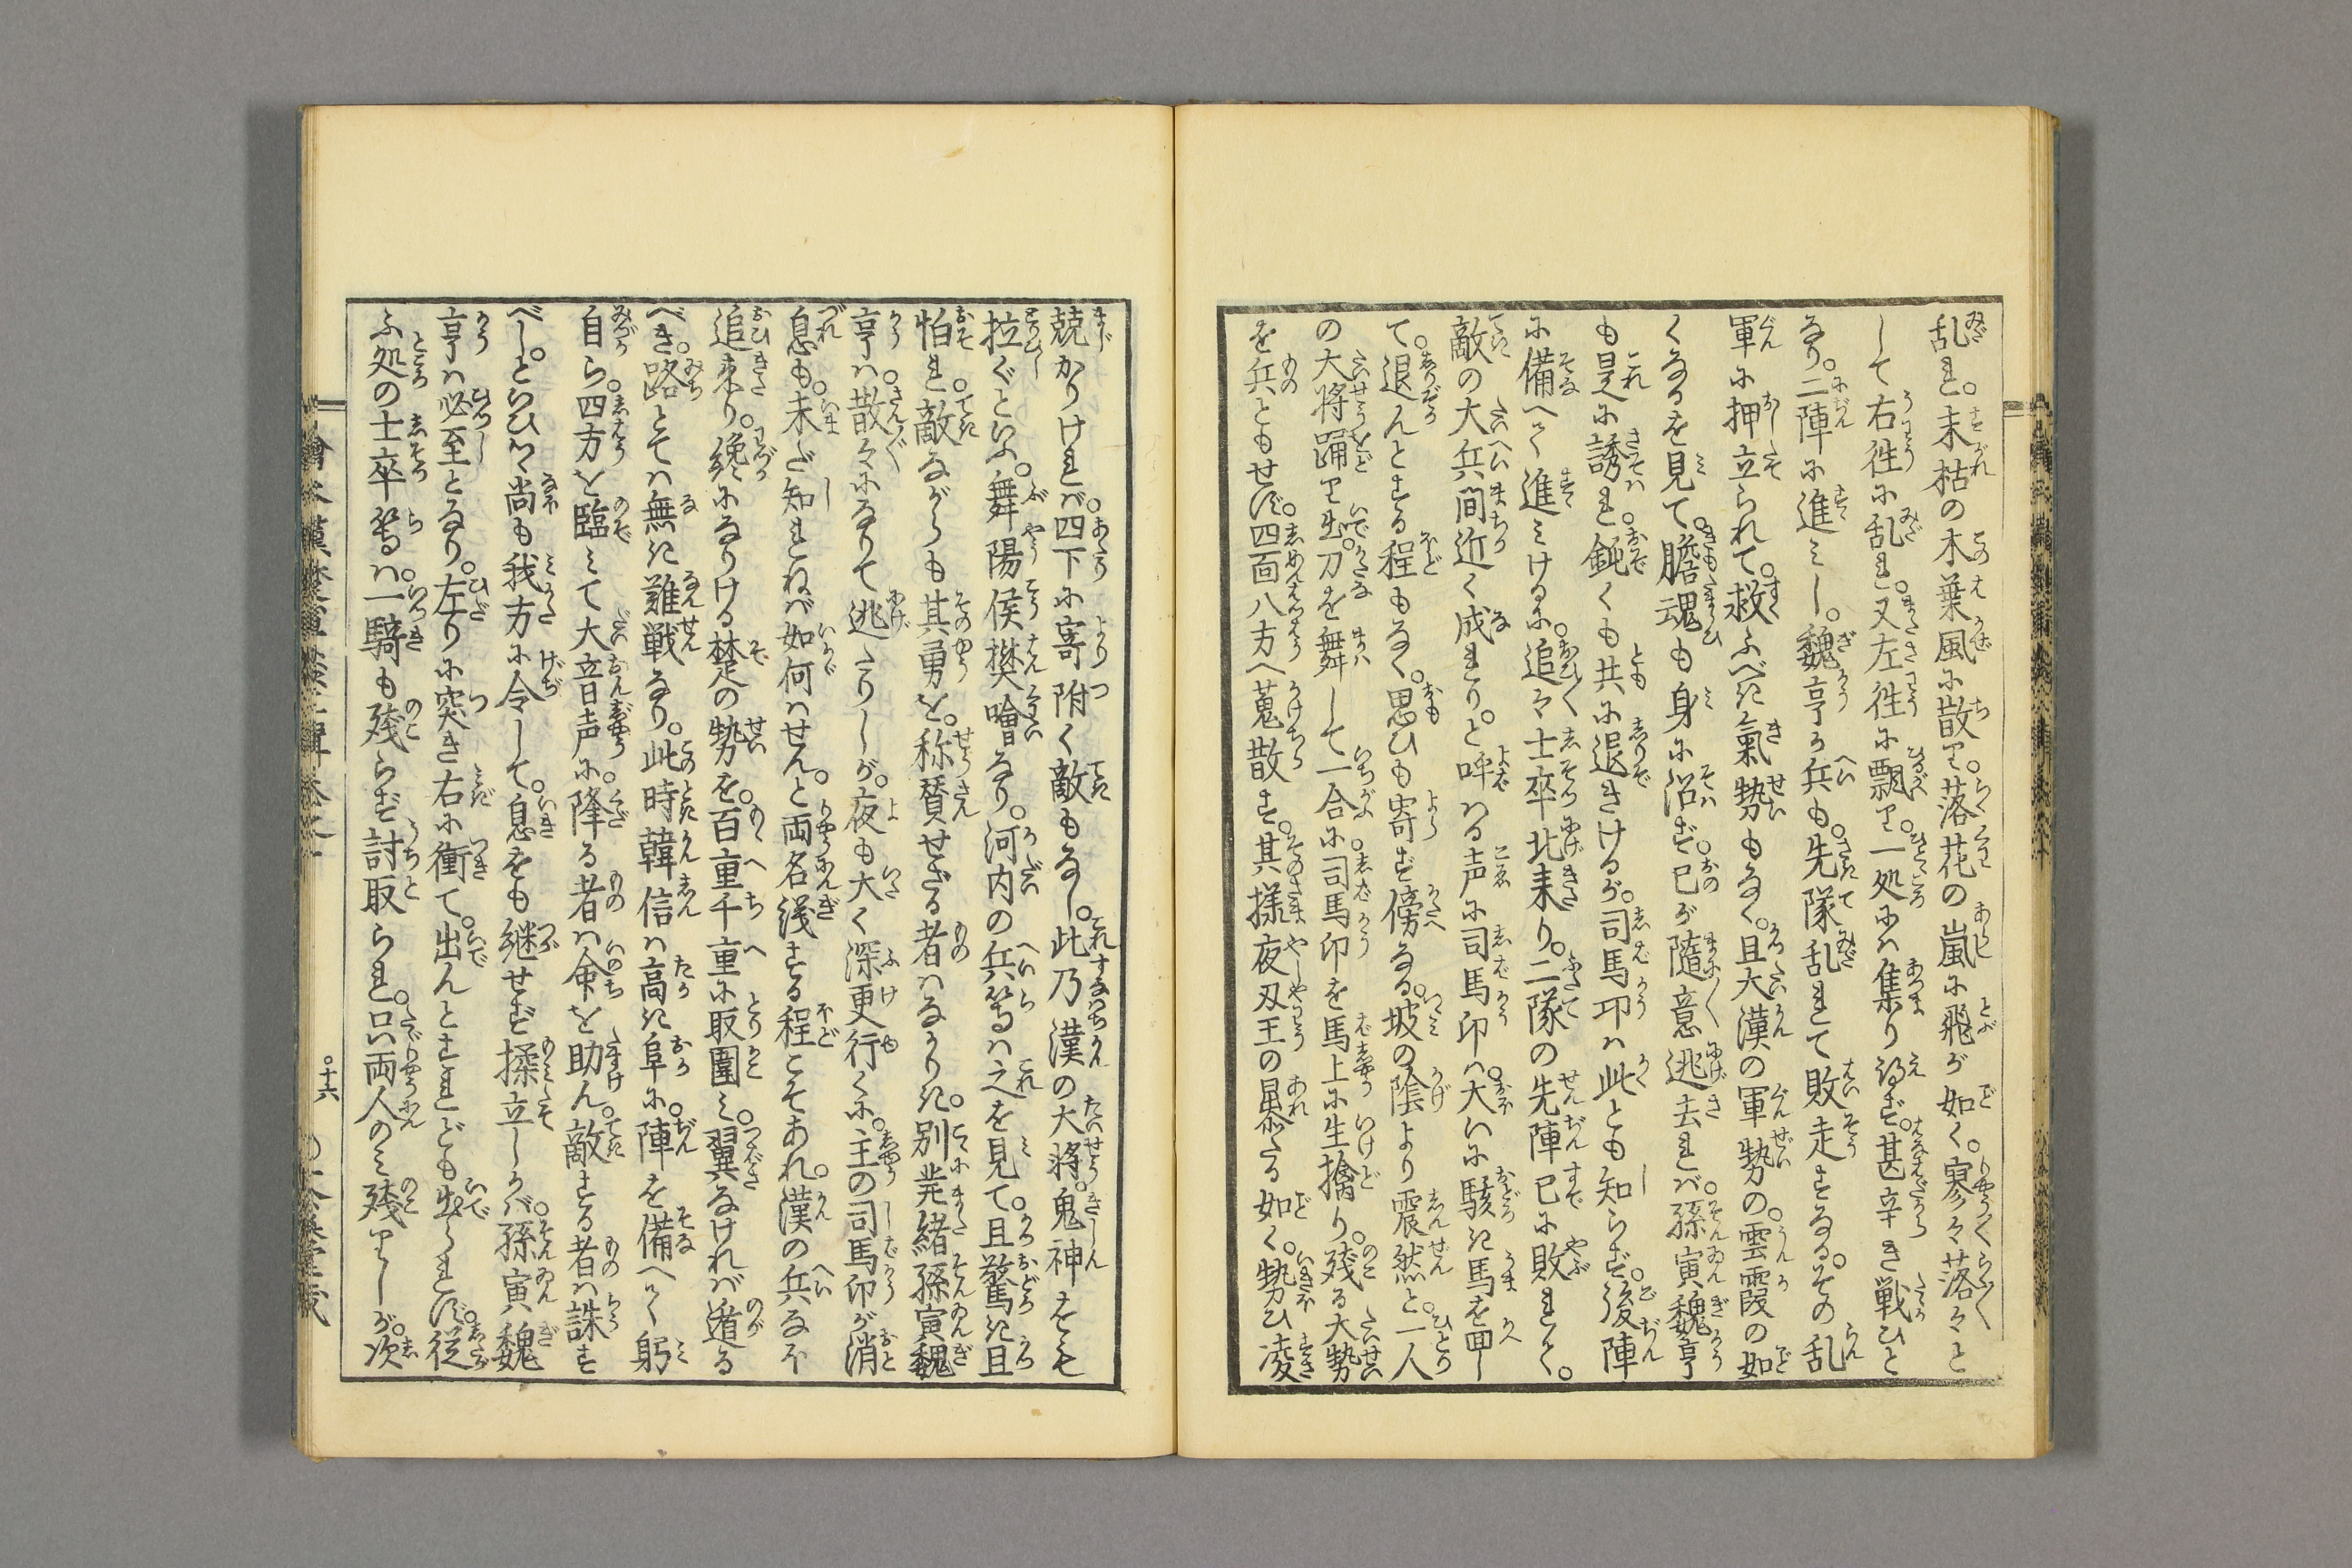 乱れ。末枯の木葉風に散り。落花の嵐に飛が如く。寥々落々と
して右往に乱れ。又左往に飄り。一処には集り得ず。甚辛き戦ひと
なり。二陣に進みし。魏亨が兵も。先隊乱れて敗走するる。その乱
軍に押立られて。救ふべき氣勢もなく。且大漢の軍勢の。雲霞の如
くなるを見て。膽魂も身に沿ず。己が随意逃去れば。孫寅魏亨
も是に誘れ。鈍くも共に退きけるが。司馬卬は此とも知らず。後陣
に備へて進みける に。追々士卒北来り。二隊の先陣已に敗れて。
敵の大兵間近く成れり。と呼はる声に司馬卬は。大いに駭き馬を回し
て。退んとする程もなく。思ひも寄ず傍なる。坡の陰より震然と。一人
の大将踊り出。刀を舞して一合に。司馬卬を馬上に生擒り。残る大勢
を兵ともせず。四面八方へ蒐散す。其様夜叉王の暴たる如く。勢ひ凌
兢かりければ。四下に寄附く敵もなし。此乃漢の大将。鬼神をも
拉ぐといふ。舞陽侯樊噲なり。河内の兵等は之を見て。且驚き且
怕れ。敵ながらも其勇を。称賛せざる者はなかりき。別説孫寅魏
亨は。散々になりて逃たりしが。夜も大く深更行くに。主の司馬卬が消
息も。未だ知れねば如何はせん。と両名議する程こそあれ。漢の兵なほ
追来り。纔になりける楚の勢を。百重千重に取圍み。翼なければ遁る
べき。路とては無き難戦なり。此時韓信は高き阜に。陣を備へて躬
自ら。四方を臨みて大音声に。降る者は命を助ん。敵する者は誅す
べし。といひつゝ尚も我方に令して。息をも継せず揉立しかば。孫寅魏
亨は必至となり。左りに突き右に衝て。出んとすれども出られず。従
ふ処の士卒等は。一騎も残らず討取られ。只両人のみ残りしが。次
十六